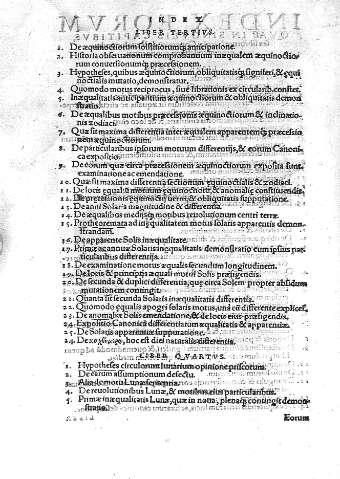 INDEX
LIBER TERTIVS.
1. De æquinoctiorum solstitiorumq; anticipatione.
2. Historia obseruationum comprobantium inæqualem æquinoctiorum
conuersionumq; præcessionem.
3. Hypotheses, quibus æquinoctiorum, obliquitatisq; signiferi, & æqui
noctialis mutatio, demonstratur.
4. Quomodo motus reciprocus, siue librationis ex circularib. constet.
5. Inæqualitatis anticipantium æquinoctiorum & obliquitatis demon
stratio.
6. De æqualibus motibus præcessionis æquinoctiorum & inclinatio
nis zodiaci.
7. Quæ sit maxima differentia inter æqualem apparentemq; præcessio
nem æquinoctiorum.
8. De particularibus ipsorum motuum differentijs, & eorum Canoni
ca expositio.
9. De eorum quæ circa præcessionem æquinoctiorum exposita sunt,
examinatione ac emendatione.
10. Quæ sit maxima differentia sectionum æquinoctialis & zodiaci.
11. De locis æqualium motuum æquinoctiorum, & anomaliæ constituendis
12. De præcessionis æquinoctij uerni, & obliquitatis supputatione.
13. De anni Solaris magnitudine & differentia.
14. De æqualibus medijsq; motibus reuolutionum centri terræ.
15. Protheoremata ad inæqualitatem motus solaris apparentis demon
strandam.
16. De apparente Solis inæqualitate.
19. Primæ ac annuæ Solaris inæqualitatis demonstratio cum ipsius par
ticularibus differentijs.
18. De examinatione motus æqualis secundum longitudinem.
19. De locis & principijs æquali motui Solis præfigendis.
20. De secunda & duplici differentia, quæ circa Solem propter absidum
mutationem contingit.
21. Quanta sit secunda Solaris inæqualitatis differentia.
22. Quomodo æqualis apogei solaris motus, unà cũ differente explicet,
23. De anomaliæ Solis emendatione, & de locis eius præfigendis.
24. Expositio Canonica differentiarum æqualitatis & apparentiæ.
25. De Solis apparentis supputatione.
26. De hoc est diei naturalis differentia.
LIBER QVARTVS.
1. Hypotheses circulorum lunarium opinione priscorum.
2. De earum assumptionum defectu.
3. Alia de motu Lunæ sententia.
4. De reuolutionibus Lunæ, & motibus eius particularibus.
5. Primæ inæqualitatis Lunæ, quæ in noua, plenaq; contingit demon
stratio.
Eorum